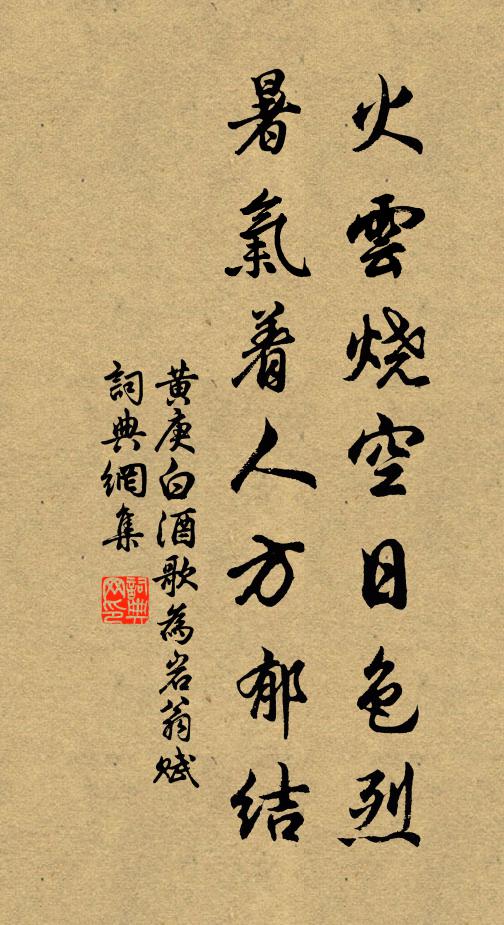 火雲烧空日色烈
暑氣着人方郁结
黄庚白酒歌為岩翁赋
詞典網集
詞典网印